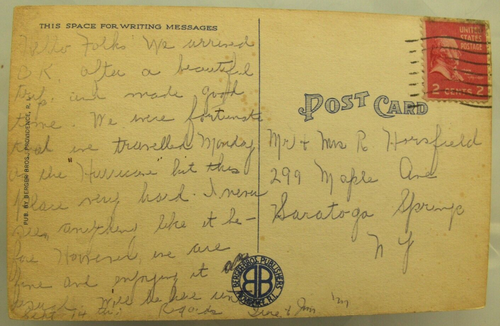 THIS SPACE FOR WRITING MESSAGES
Hello Folks We arrived
O.K. after a beautiful
trip and made good
time. We were fortunate
that we travelled Monday
as the "Hurricane" hit this
place very hard. I never
seen anything like it be-
fore However, we are
fine and enjoying it
Will be here
Sept. 14 Regards
PUB. BY BERGER BROS., PROVIDENCE, R.I.
UNITED STATES POSTAGE
2 CENTS 2
POST CARD
Mr & Mrs R Horsfield
299 Maple Ave
Saratoga Springs
N Y
BERGER BROS. PUBLISHERS
BB